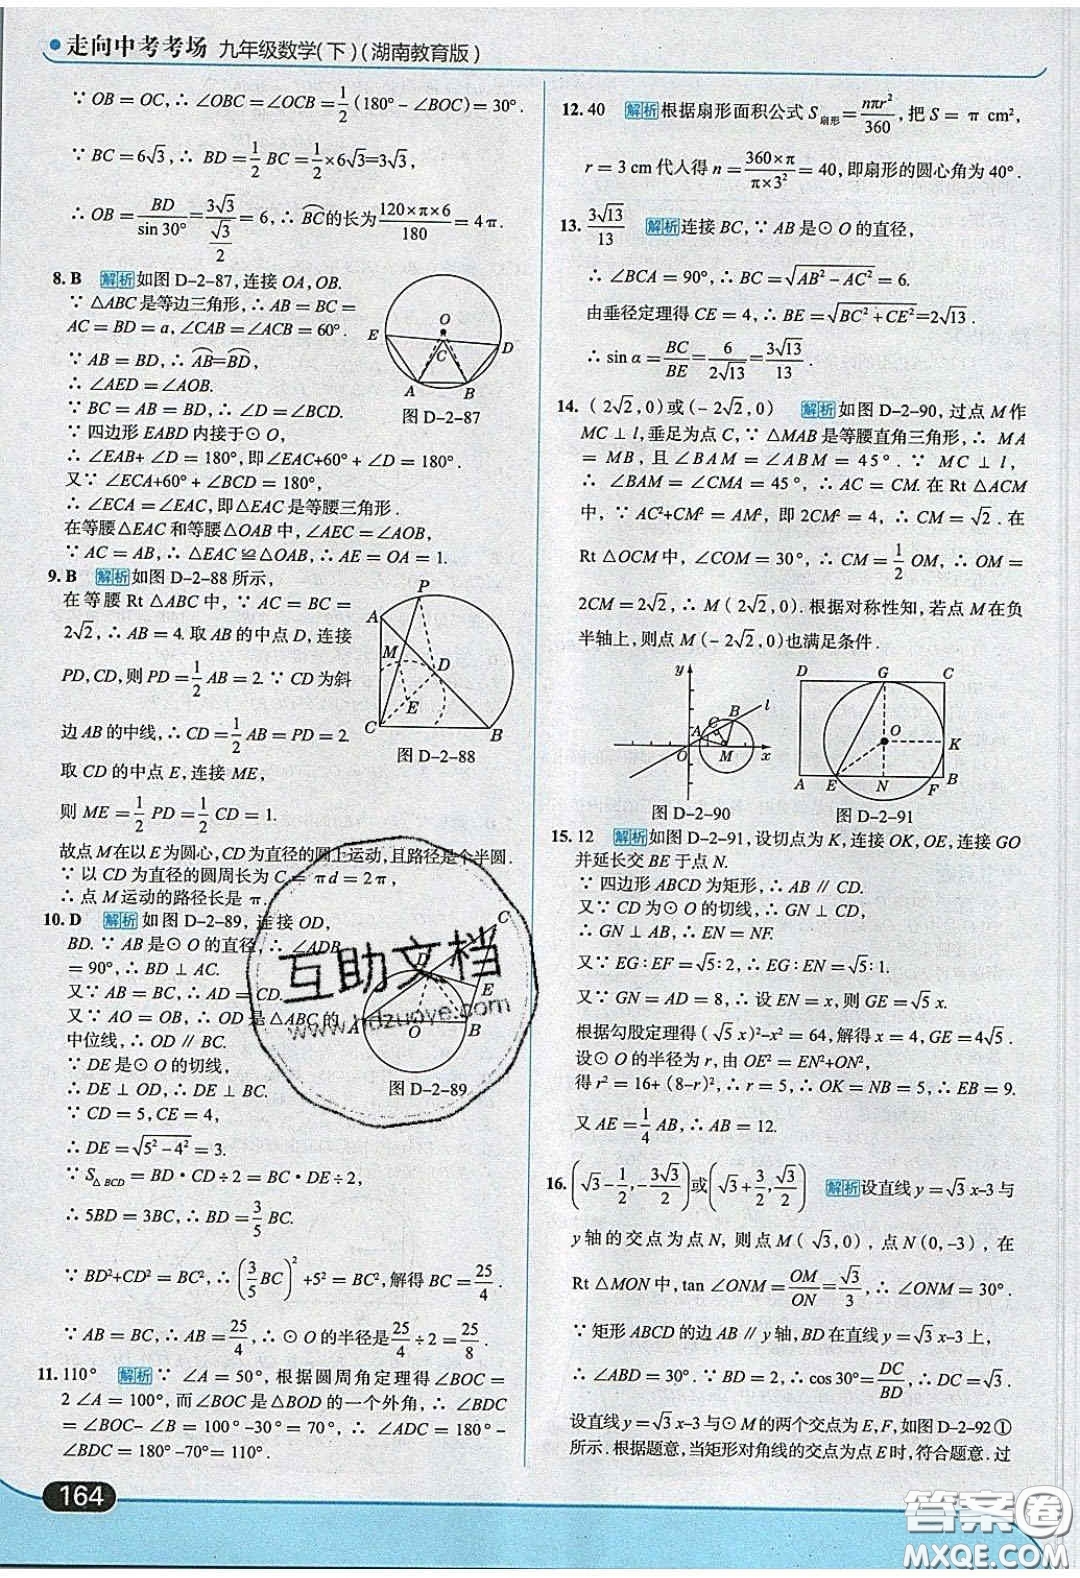 走向中考考场 九年级数学(下)(湖南教育版)
∵ OB = OC, ∴ ∠OBC = ∠OCB = 1/2 (180° - ∠BOC) = 30°.
∵ BC = 6√3, ∴ BD = 1/2 BC = 1/2 × 6√3 = 3√3,
∴ OB = BD/sin 30° = 3√3/(√3/2) = 6, ∴ B͡C的长为 120×π×6/180 = 4π.
8. B 解析 如图 D-2-87, 连接 OA, OB.
∵ △ABC 是等边三角形, ∴ AB = BC =
AC = BD = a, ∠CAB = ∠ACB = 60°.
∵ AB = BD, ∴ A͡B = B͡D,
∴ ∠AED = ∠AOB.
∵ BC = AB = BD, ∴ ∠D = ∠BCD.
∵ 四边形 EABD 内接于⊙O,
∴ ∠EAB+ ∠D = 180°, 即∠EAC+60° + ∠D = 180°.
又∵ ∠ECA+60° + ∠BCD = 180°,
∴ ∠ECA = ∠EAC, 即△EAC 是等腰三角形.
在等腰△EAC 和等腰△OAB 中, ∠AEC = ∠AOB,
∵ AC = AB, ∴ △EAC ≌ △OAB, ∴ AE = OA = 1.
E O C D A B
图 D-2-87
9. B 解析 如图 D-2-88 所示,
在等腰 Rt △ABC 中, ∵ AC = BC =
2√2, ∴ AB = 4. 取 AB 的中点 D, 连接
PD, CD, 则 PD = 1/2 AB = 2. ∵ CD 为斜
边 AB 的中线, ∴ CD = 1/2 AB = PD = 2.
取 CD 的中点 E, 连接 ME,
则 ME = 1/2 PD = 1/2 CD = 1.
P A M D E C B
图 D-2-88
故点 M 在以 E 为圆心, CD 为直径的圆上运动, 且路径是个半圆.
∵ 以 CD 为直径的圆周长为 C = πd = 2π,
∴ 点 M 运动的路径长是 π.
10. D 解析 如图 D-2-89, 连接 OD,
BD. ∵ AB 是⊙O 的直径, ∴ ∠ADB
= 90°, ∴ BD ⊥ AC.
又∵ AB = BC, ∴ AD = CD.
又∵ AO = OB, ∴ OD 是△ABC 的
中位线, ∴ OD ∥ BC.
∵ DE 是⊙O 的切线,
∴ DE ⊥ OD, ∴ DE ⊥ BC.
∵ CD = 5, CE = 4,
∴ DE = √(5²-4²) = 3.
∵ S△BCD = BD·CD÷2 = BC·DE÷2,
∴ 5BD = 3BC, ∴ BD = 3/5 BC.
∵ BD²+CD² = BC², ∴ (3/5 BC)² +5² = BC², 解得 BC = 25/4.
∵ AB = BC, ∴ AB = 25/4, ∴ ⊙O 的半径是 25/4 ÷ 2 = 25/8.
C D E A O B
图 D-2-89
11. 110° 解析 ∵ ∠A = 50°, 根据圆周角定理得∠BOC =
2 ∠A = 100°, 而∠BOC 是△BOD 的一个外角, ∴ ∠BDC
= ∠BOC- ∠B = 100° -30° = 70°, ∴ ∠BDC
∠BDC = 180° -70°= 110°.
12. 40 解析 根据扇形面积公式 S扇形 = nπr²/360, 把 S = π cm²,
r = 3 cm 代入得 n = 360×π/π×3² = 40, 即扇形的圆心角为 40°.
13. 3√13/13 解析 连接 BC, ∵ AB 是⊙O 的直径,
∴ ∠BCA = 90°, ∴ BC = √(AB² - AC²) = 6.
由垂径定理得 CE = 4, ∴ BE = √(BC²+CE²)=2√13.
∴ sin α = BC/BE = 6/2√13 = 3√13/13.
14. (2√2, 0)或(-2√2, 0) 解析 如图 D-2-90, 过点 M 作
MC ⊥ l, 垂足为点 C, ∵ △MAB 是等腰直角三角形, ∴ MA
= MB, 且∠BAM = ∠ABM = 45°. ∵ MC ⊥ l,
∴ ∠BAM = ∠CMA = 45°, ∴ AC = CM. 在 Rt △ACM
中, ∵ AC²+CM² = AM², 即 2CM² = 4, ∴ CM = √2. 在
Rt △OCM 中, ∠COM = 30°, ∴ CM = 1/2 OM, ∴ OM =
2CM = 2√2, ∴ M (2√2, 0). 根据对称性知, 若点 M 在负
半轴上, 则点 M (-2√2, 0) 也满足条件.
y B l C A O M x
图 D-2-90
D G C O K A E N F B
图 D-2-91
15. 12 解析 如图 D-2-91, 设切点为 K, 连接 OK, OE, 连接 GO
并延长交 BE 于点 N.
∵ 四边形 ABCD 为矩形, ∴ AB ∥ CD.
又∵ CD 为⊙O 的切线, ∴ GN ⊥ CD,
∴ GN ⊥ AB, ∴ EN = NF.
又∵ EG∶EF = √5∶2, ∴ EG∶EN = √5∶1.
又∵ GN = AD = 8, ∴ 设 EN = x, 则 GE = √5 x.
根据勾股定理得(√5 x)²-x² = 64, 解得 x = 4, GE = 4√5.
设⊙O 的半径为 r, 由 OE² = EN²+ON²,
得 r² = 16+ (8-r)², ∴ r = 5, ∴ OK = NB = 5, ∴ EB = 9.
又 AE = 1/4 AB, ∴ AB = 12.
16. (√3-1/2, -3√3/2)或(√3+3/2, √3/2) 解析 设直线 y = √3 x-3 与
y 轴的交点为点 N, 则点 M(√3, 0), 点 N(0, -3), 在
Rt △MON 中, tan ∠ONM = OM/ON = √3/3, ∴ ∠ONM = 30°.
∵ 矩形 ABCD 的边 AB ∥ y 轴, BD 在直线 y = √3 x-3 上,
∴ ∠ABD = 30°, ∴ cos30° = DC/BD, ∴ DC = √3.
设直线 y = √3 x-3 与⊙M 的两个交点为 E, F, 如图 D-2-92 ①
所示. 根据题意, 当矩形对角线的交点为点 E 时, 符合题意. 过
164
互助文档
www.hdzuoye.com
答案圈
MXQE.COM